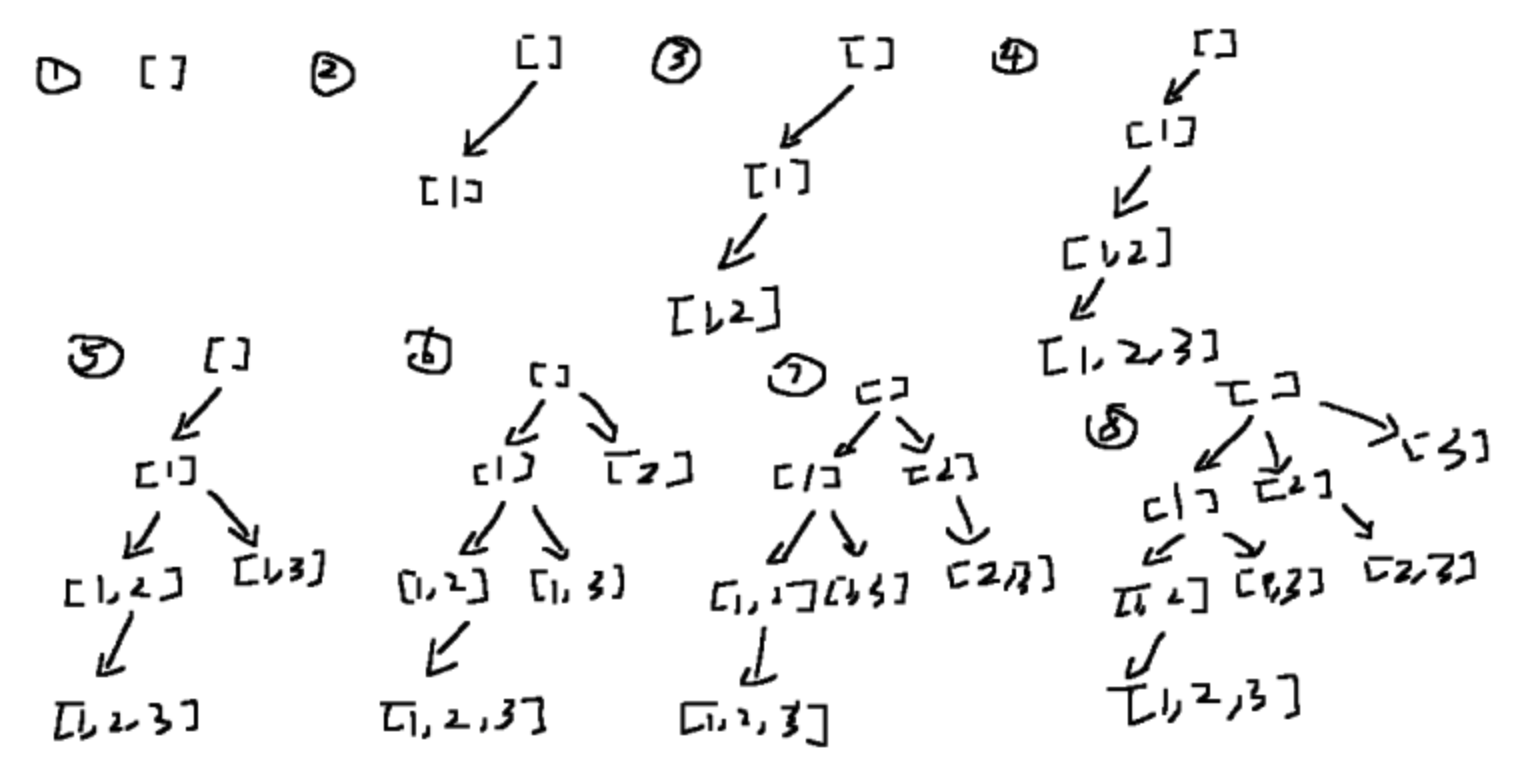 ① []
② []
[1]
③ []
[1]
[1,2]
④ []
[1]
[1,2]
[1,2,3]
⑤ []
[1]
[1,2] [1,3]
[1,2,3]
⑥ []
[1] [2]
[1,2] [1,3]
[1,2,3]
⑦ []
[1] [2]
[1,2] [1,3] [2,3]
[1,2,3]
⑧ []
[1] [2] [3]
[1,2] [1,3] [2,3]
[1,2,3]